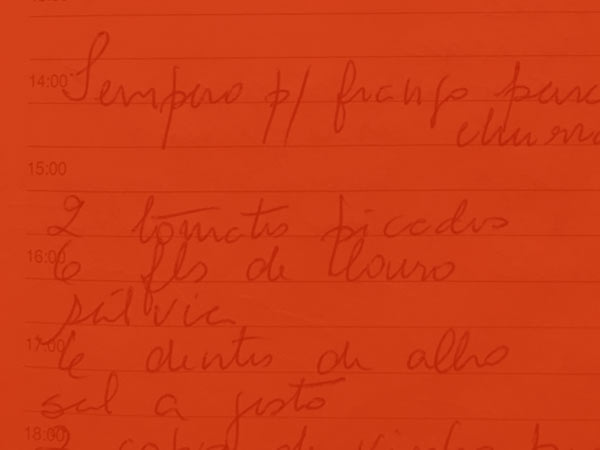 14:00 Tempero p/ frango para
churra
15:00
2 tomates picados
16:00 6 fls de louro
sálvia
17:00 4 dentes de alho
sal a gosto
18:00 2 de vinho b